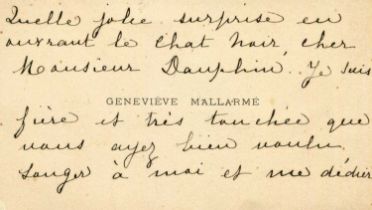 Quelle jolie surprise en
ouvrant le Chat Noir, cher
Monsieur Dauphin. Je suis
GENEVIÈVE MALLARMÉ
fière et très touchée que
vous ayez bien voulu
songer à moi et me dédier